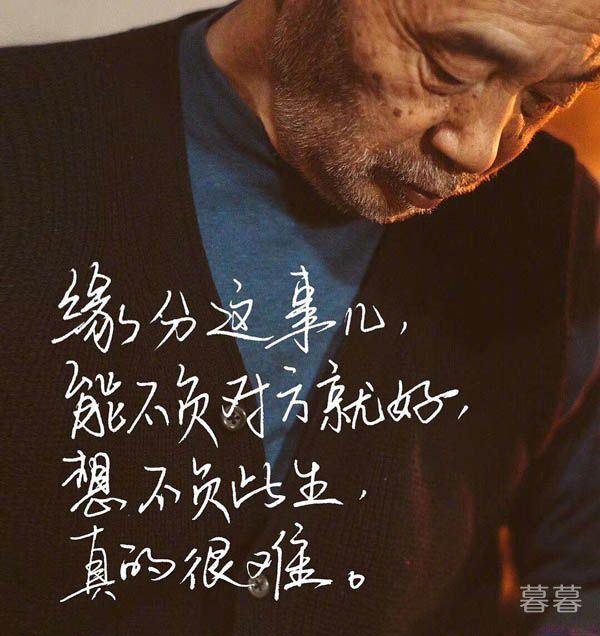 缘分这事儿，
能不负对方就好，
想不负此生，
真的很难。
暮暮